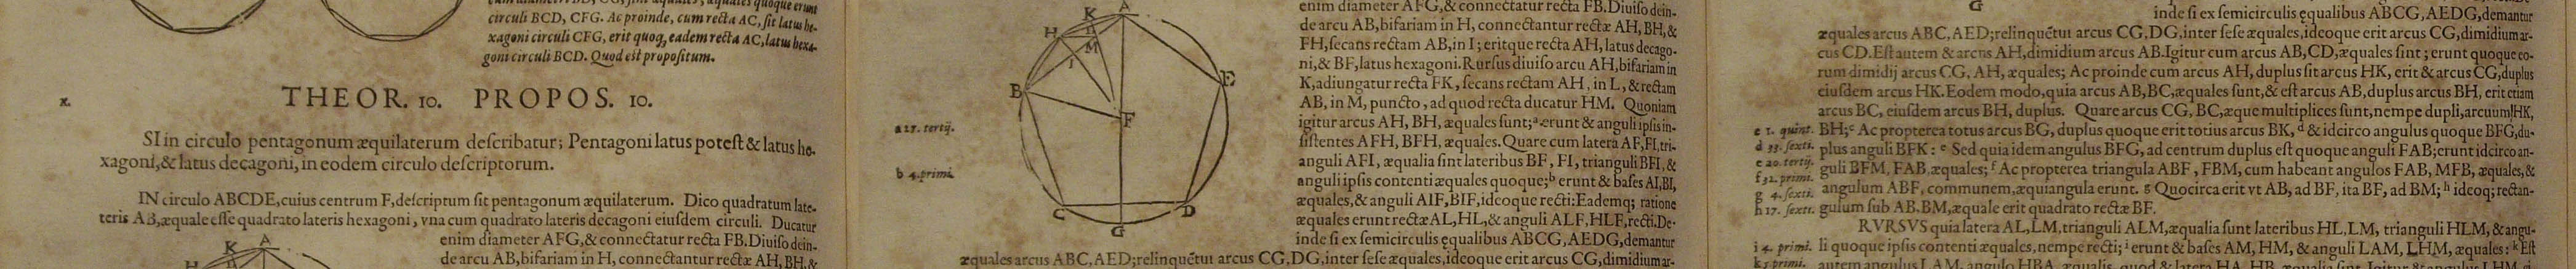 circuli BCD, CFG. Ac proinde, cum recta AC, sit latus he-
xagoni circuli CFG, erit quoq, eadem recta AC, latus hexa-
goni circuli BCD. Quod est propositum.
x.
THEOR. 10. PROPOS. 10.
SI in circulo pentagonum æquilaterum describatur; Pentagoni latus potest & latus he-
xagoni, & latus decagoni, in eodem circulo descriptorum.
IN circulo ABCDE, cuius centrum F, descriptum sit pentagonum æquilaterum. Dico quadratum late-
teris AB, æquale esse quadrato lateris hexagoni, vna cum quadrato lateris decagoni eiusdem circuli. Ducatur
enim diameter AFG, & connectatur recta FB. Diuiso dein-
de arcu AB, bifariam in H, connectantur rectæ AH, BH, &
K A
H
K A
H
M
I
B
E
F
C
D
G
enim diameter AFG, & connectatur recta FB. Diuiso dein-
de arcu AB, bifariam in H, connectantur rectæ AH, BH, &
FH, secans rectam AB, in I; eritque recta AH, latus decago-
ni, & BF, latus hexagoni. Rursus diuiso arcu AH, bifariam in
K, adiungatur recta FK, secans rectam AH, in L, & rectam
AB, in M, puncto, ad quod recta ducatur HM. Quoniam
a 27. tertij.
igitur arcus AH, BH, æquales sunt; a erunt & anguli ipsis in-
sistentes AFH, BFH, æquales. Quare cum latera AF, FI, tri-
anguli AFI, æqualia sint lateribus BF, FI, trianguli BFI, &
b 4. primi.
anguli ipsis contenti æquales quoque; b erunt & bases AI, BI,
æquales, & anguli AIF, BIF, ideoque recti: Eademq; ratione
æquales erunt rectæ AL, HL, & anguli ALF, HLF, recti. De-
inde si ex semicirculis equalibus ABCG, AEDG, demantur
æquales arcus ABC, AED; relinquẽtur arcus CG, DG, inter sese æquales, ideoque erit arcus CG, dimidium ar-
G
inde si ex semicirculis equalibus ABCG, AEDG, demantur
æquales arcus ABC, AED; relinquẽtur arcus CG, DG, inter sese æquales, ideoque erit arcus CG, dimidium ar-
cus CD. Est autem & arcus AH, dimidium arcus AB. Igitur cum arcus AB, CD, æquales sint; erunt quoque eo-
rum dimidij arcus CG, AH, æquales; Ac proinde cum arcus AH, duplus sit arcus HK, erit & arcus CG, duplus
eiusdem arcus HK. Eodem modo, quia arcus AB, BC, æquales sunt, & est arcus AB, duplus arcus BH, erit etiam
arcus BC, eiusdem arcus BH, duplus. Quare arcus CG, BC, æque multiplices sunt, nempe dupli, arcuum HK,
e 1. quint.
BH; c Ac propterea totus arcus BG, duplus quoque erit totius arcus BK, d & idcirco angulus quoque BFG, du-
d 33. sexti.
plus anguli BFK: e Sed quia idem angulus BFG, ad centrum duplus est quoque anguli FAB; erunt idcirco an-
e 20. tertij.
guli BFM, FAB, æquales; f Ac propterea triangula ABF, FBM, cum habeant angulos FAB, MFB, æquales, &
f 32. primi.
angulum ABF, communem, æquiangula erunt. g Quocirca erit vt AB, ad BF, ita BF, ad BM; h ideoq; rectan-
g 4. sexti.
h 17. sexti.
gulum sub AB. BM, æquale erit quadrato rectæ BF.
RVRSVS quia latera AL, LM, trianguli ALM, æqualia sunt lateribus HL, LM, trianguli HLM, & angu-
i 4. primi.
li quoque ipsis contenti æquales, nempe recti; i erunt & bases AM, HM, & anguli LAM, LHM, æquales: k Est
k 5. primi.